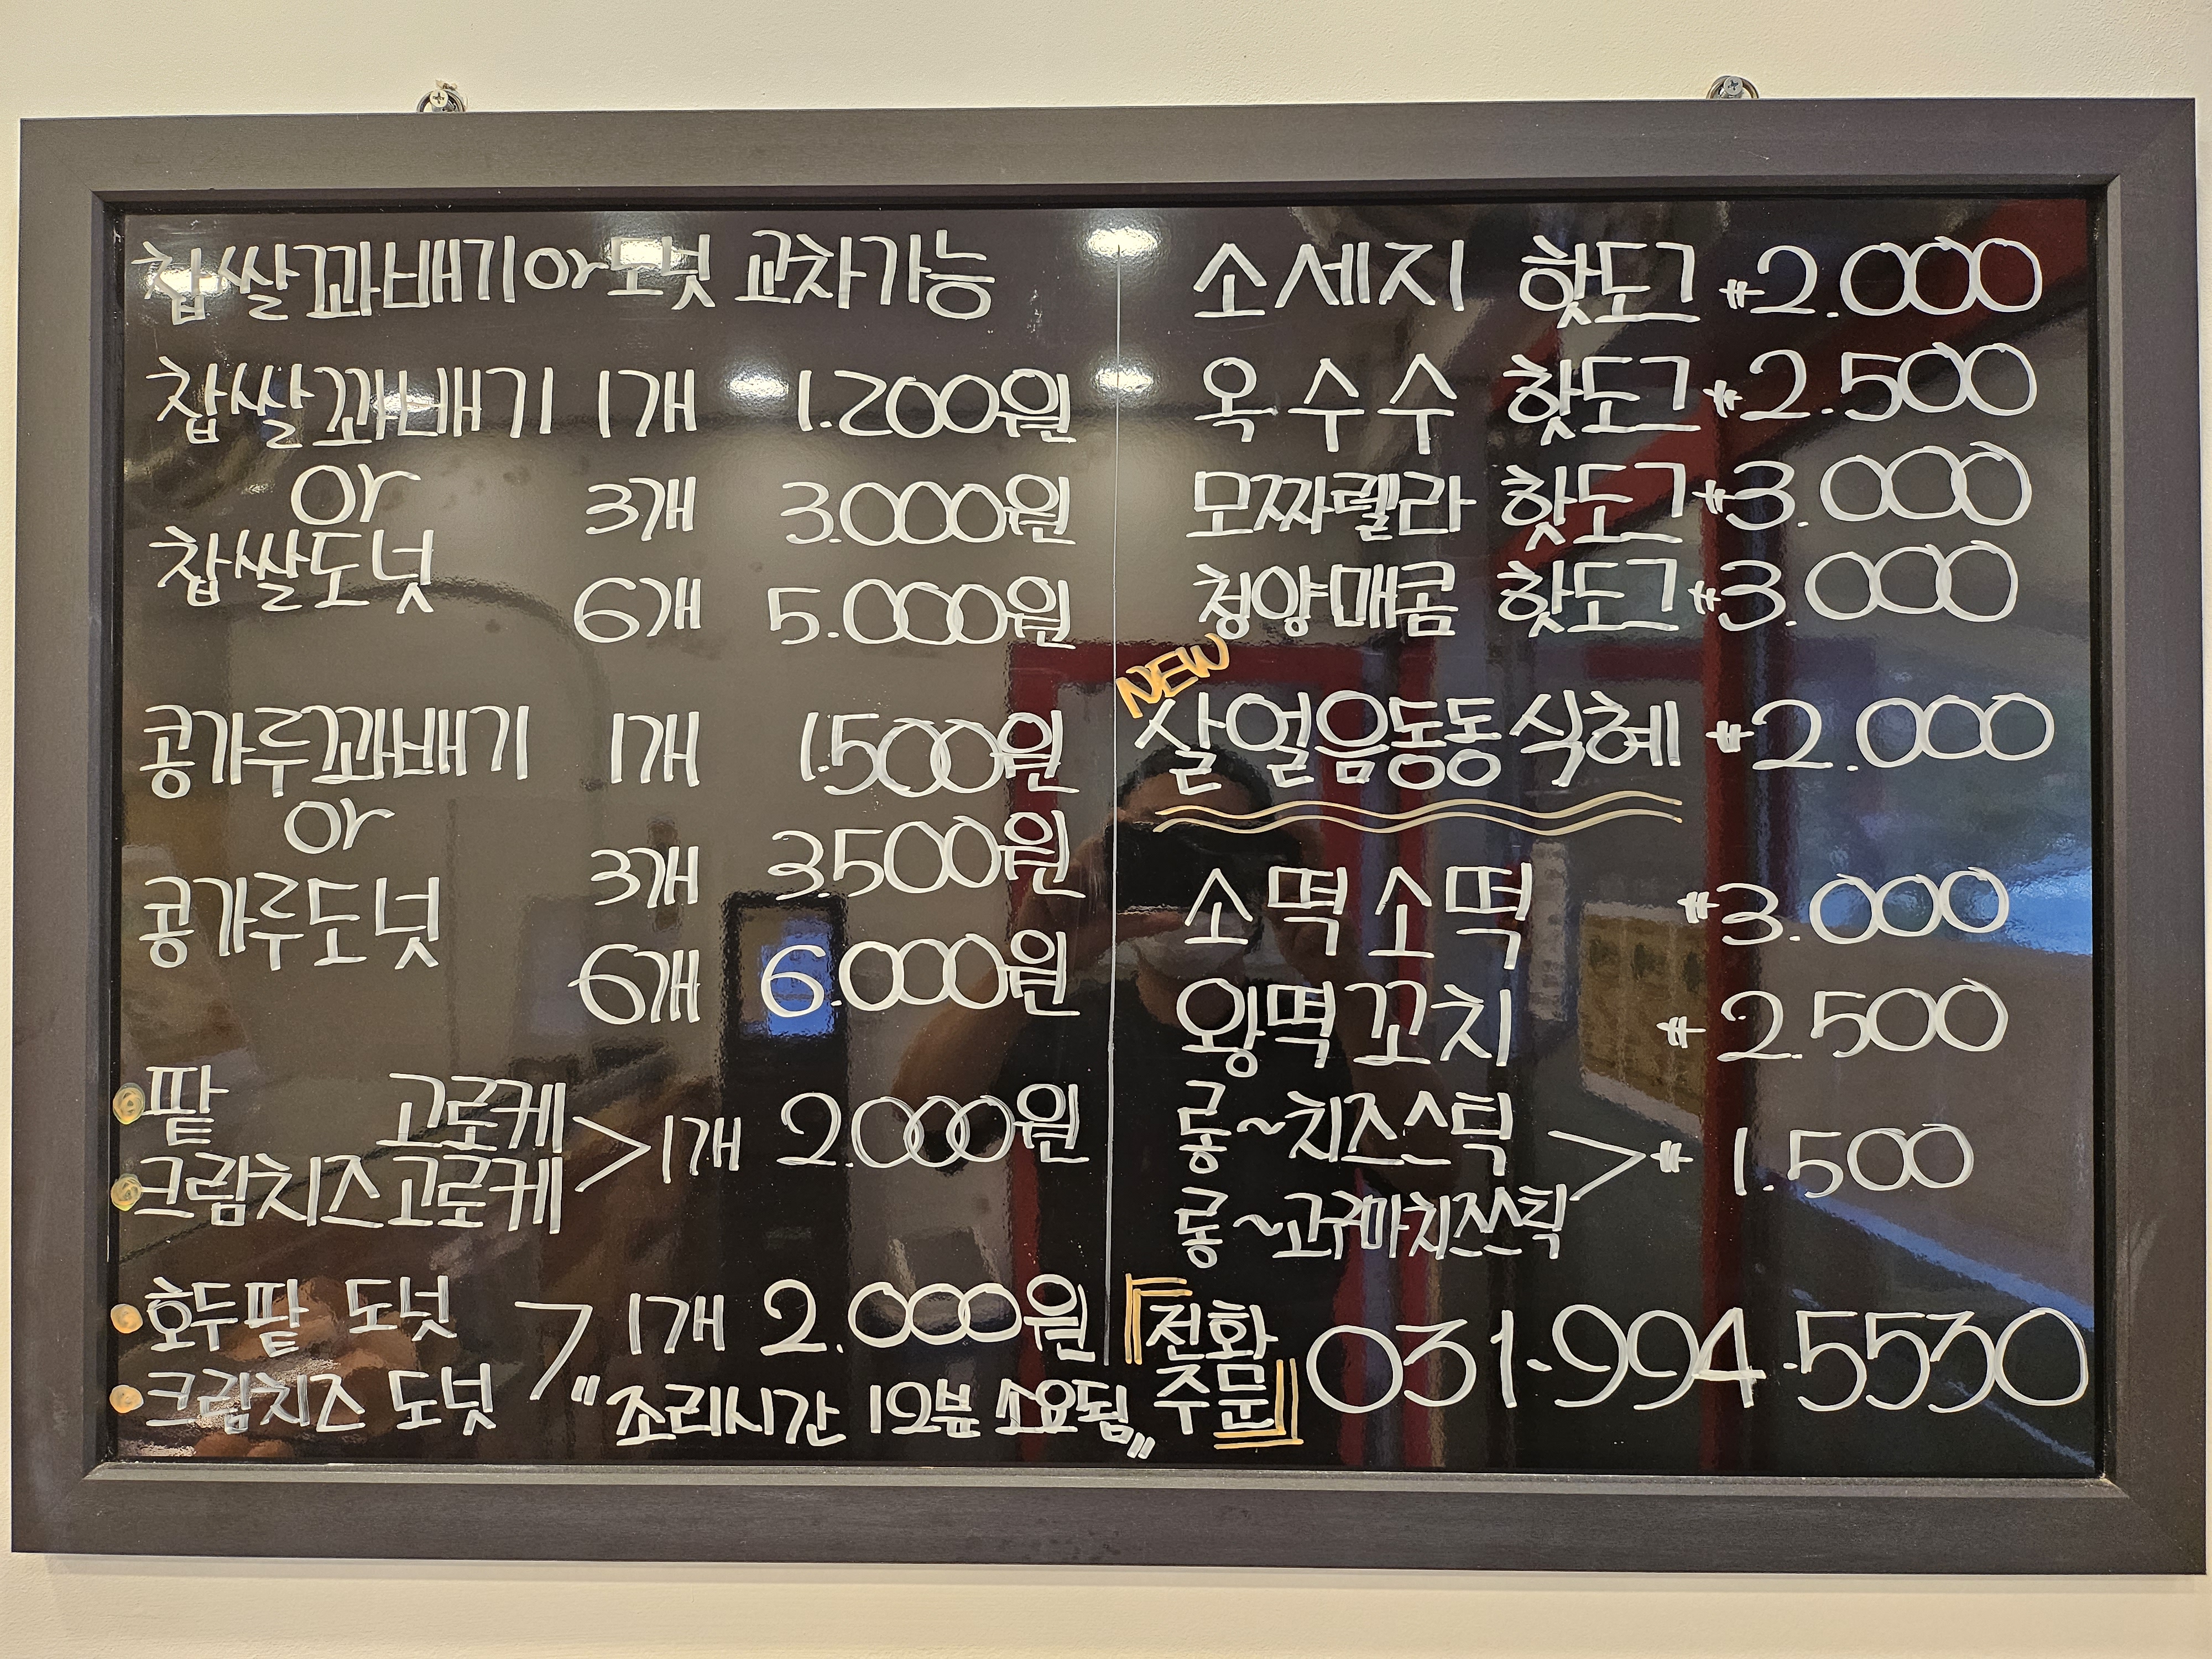 찹쌀꽈배기 or 도넛 교차가능
찹쌀꽈배기 1개 1.200원
or
3개 3.000원
찹쌀도넛
6개 5.000원
콩가루꽈배기 1개 1.500원
or
3개 3.500원
콩가루도넛
6개 6.000원
팥 고로케
크림치즈고로케 > 1개 2.000원
호두팥 도넛
크림치즈 도넛 > 1개 2.000원
"조리시간 12분 소요됨"
소세지 핫도그 ₩2.000
옥수수 핫도그 ₩2.500
모짜렐라 핫도그 ₩3.000
청양매콤 핫도그 ₩3.000
NEW
살얼음동동식혜 ₩2.000
소떡소떡 ₩3.000
왕떡꼬치 ₩2.500
롱~치즈스틱
롱~고구마치즈스틱 > ₩1.500
『전화
주문』 031-994-5530